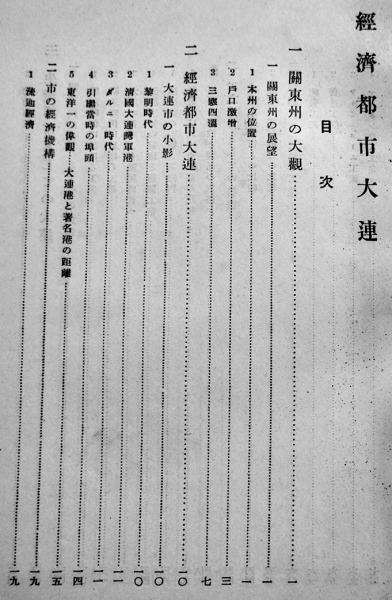 經濟都市大連
目次
一 關東州の大觀……一
一 關東州の展望……一
1 本州の位置……一
2 戶口激增……三
3 三寒四溫……七
二 經濟都市大連……一〇
一 大連市の小影……一〇
1 黎明時代……一〇
2 淸國大連灣軍港……一〇
3 ダルニー時代……一一
4 引繼當時の埠頭……一四
5 東洋一の偉觀 大連港と著名港の距離……一五
二 市の經濟機構……一九
1 疏通經濟……一九